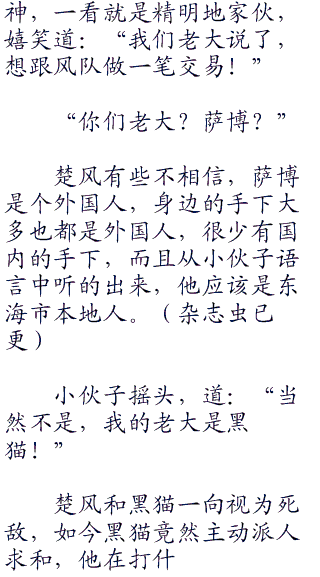 神，一看就是精明地家伙，
嬉笑道：“我们老大说了，
想跟风队做一笔交易！”
“你们老大？萨博？”
楚风有些不相信，萨博
是个外国人，身边的手下大
多也都是外国人，很少有国
内的手下，而且从小伙子语
言中听的出来，他应该是东
海市本地人。（杂志虫已
更）
小伙子摇头，道：“当
然不是，我的老大是黑
猫！”
楚风和黑猫一向视为死
敌，如今黑猫竟然主动派人
求和，他在打什